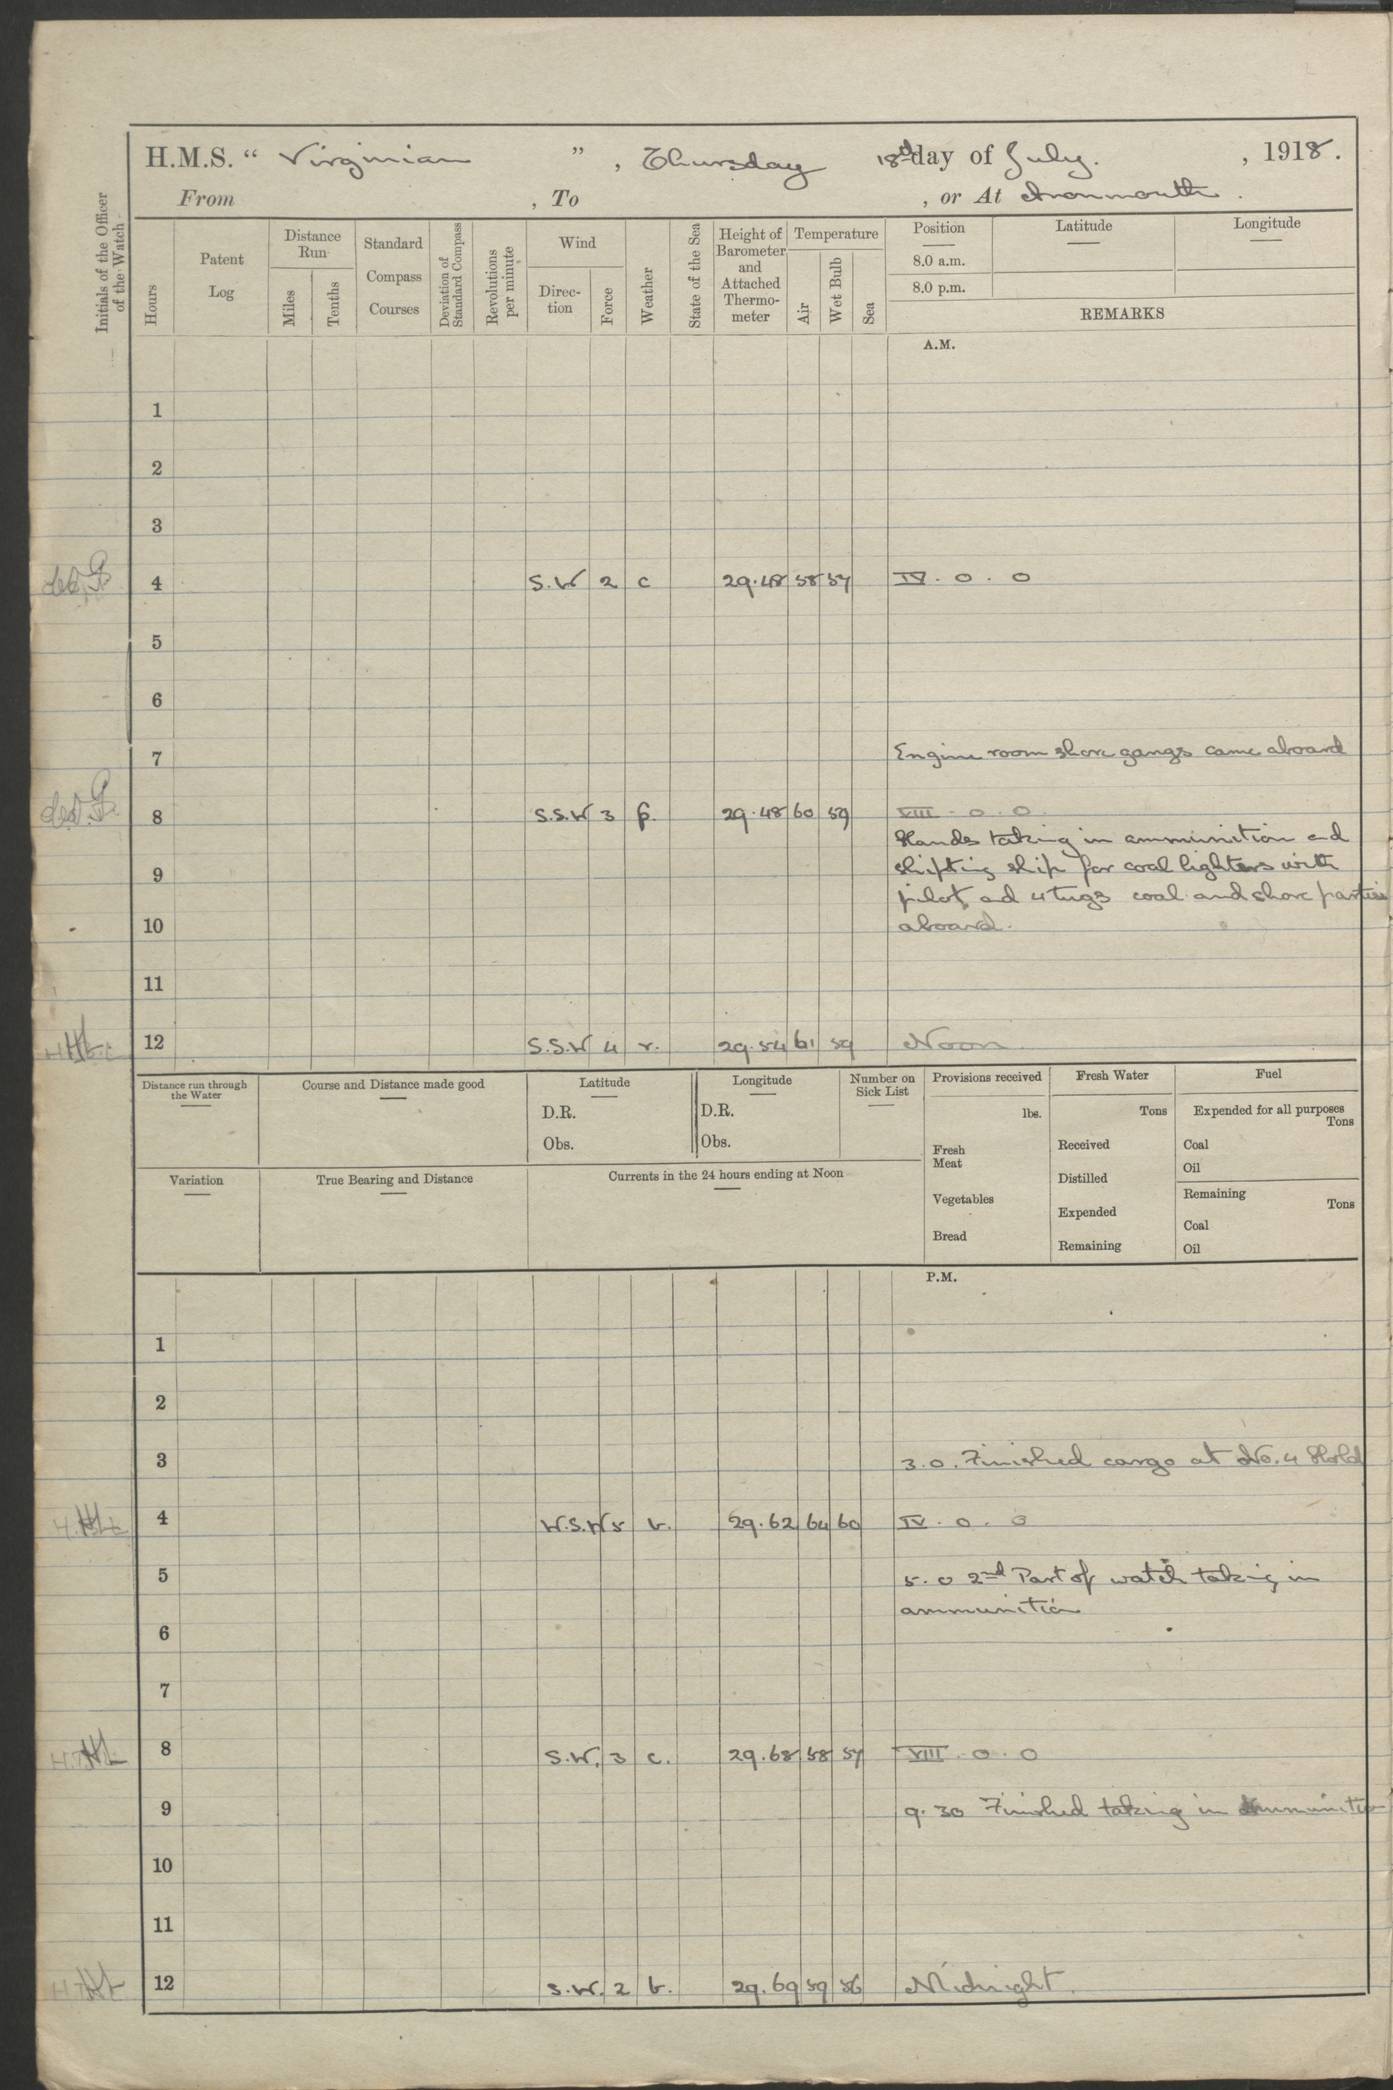 H.M.S. “ Virginian ” , Thursday 18th day of July. , 1918.
From , To , or At Avonmouth .
Initials of the Officer of the Watch
Hours
Patent Log
Distance Run
Miles
Tenths
Standard Compass Courses
Deviation of Standard Compass
Revolutions per minute
Wind
Direc-tion
Force
Weather
State of the Sea
Height of Barometer and Attached Thermo-meter
Temperature
Air
Wet Bulb
Sea
Position
8.0 a.m.
8.0 p.m.
Latitude
Longitude
REMARKS
A.M.
1
2
3
4 S.W 2 c 29.48 58 57 IV . 0 . 0
5
6
7 Engine room shore gangs came aboard
8 S.S.W 3 p. 29.48 60 59 VIII . 0 . 0
Hands taking in ammunition and
9 shifting ship for coal lighters with
pilot and 4 tugs coal and shore parties
10 aboard.
11
12 S.S.W 4 r. 29.54 61 59 Noon
Distance run through the Water
Course and Distance made good
Latitude
D.R.
Obs.
Longitude
D.R.
Obs.
Number on Sick List
Provisions received
lbs.
Fresh Meat
Vegetables
Bread
Fresh Water
Tons
Received
Distilled
Expended
Remaining
Fuel
Expended for all purposes
Tons
Coal
Oil
Remaining
Tons
Coal
Oil
Variation
True Bearing and Distance
Currents in the 24 hours ending at Noon
P.M.
1
2
3 3.0. Finished cargo at No. 4 Hold
4 W.S.W 5 b. 29.62 64 60 IV . 0 . 0
5 5.0 2nd Part of watch taking in
ammunition
6
7
8 S.W. 3 c. 29.68 58 57 VIII . 0 . 0
9 9.30 Finished taking in ammunition
10
11
12 S.W. 2 b. 29.69 59 56 Midnight.